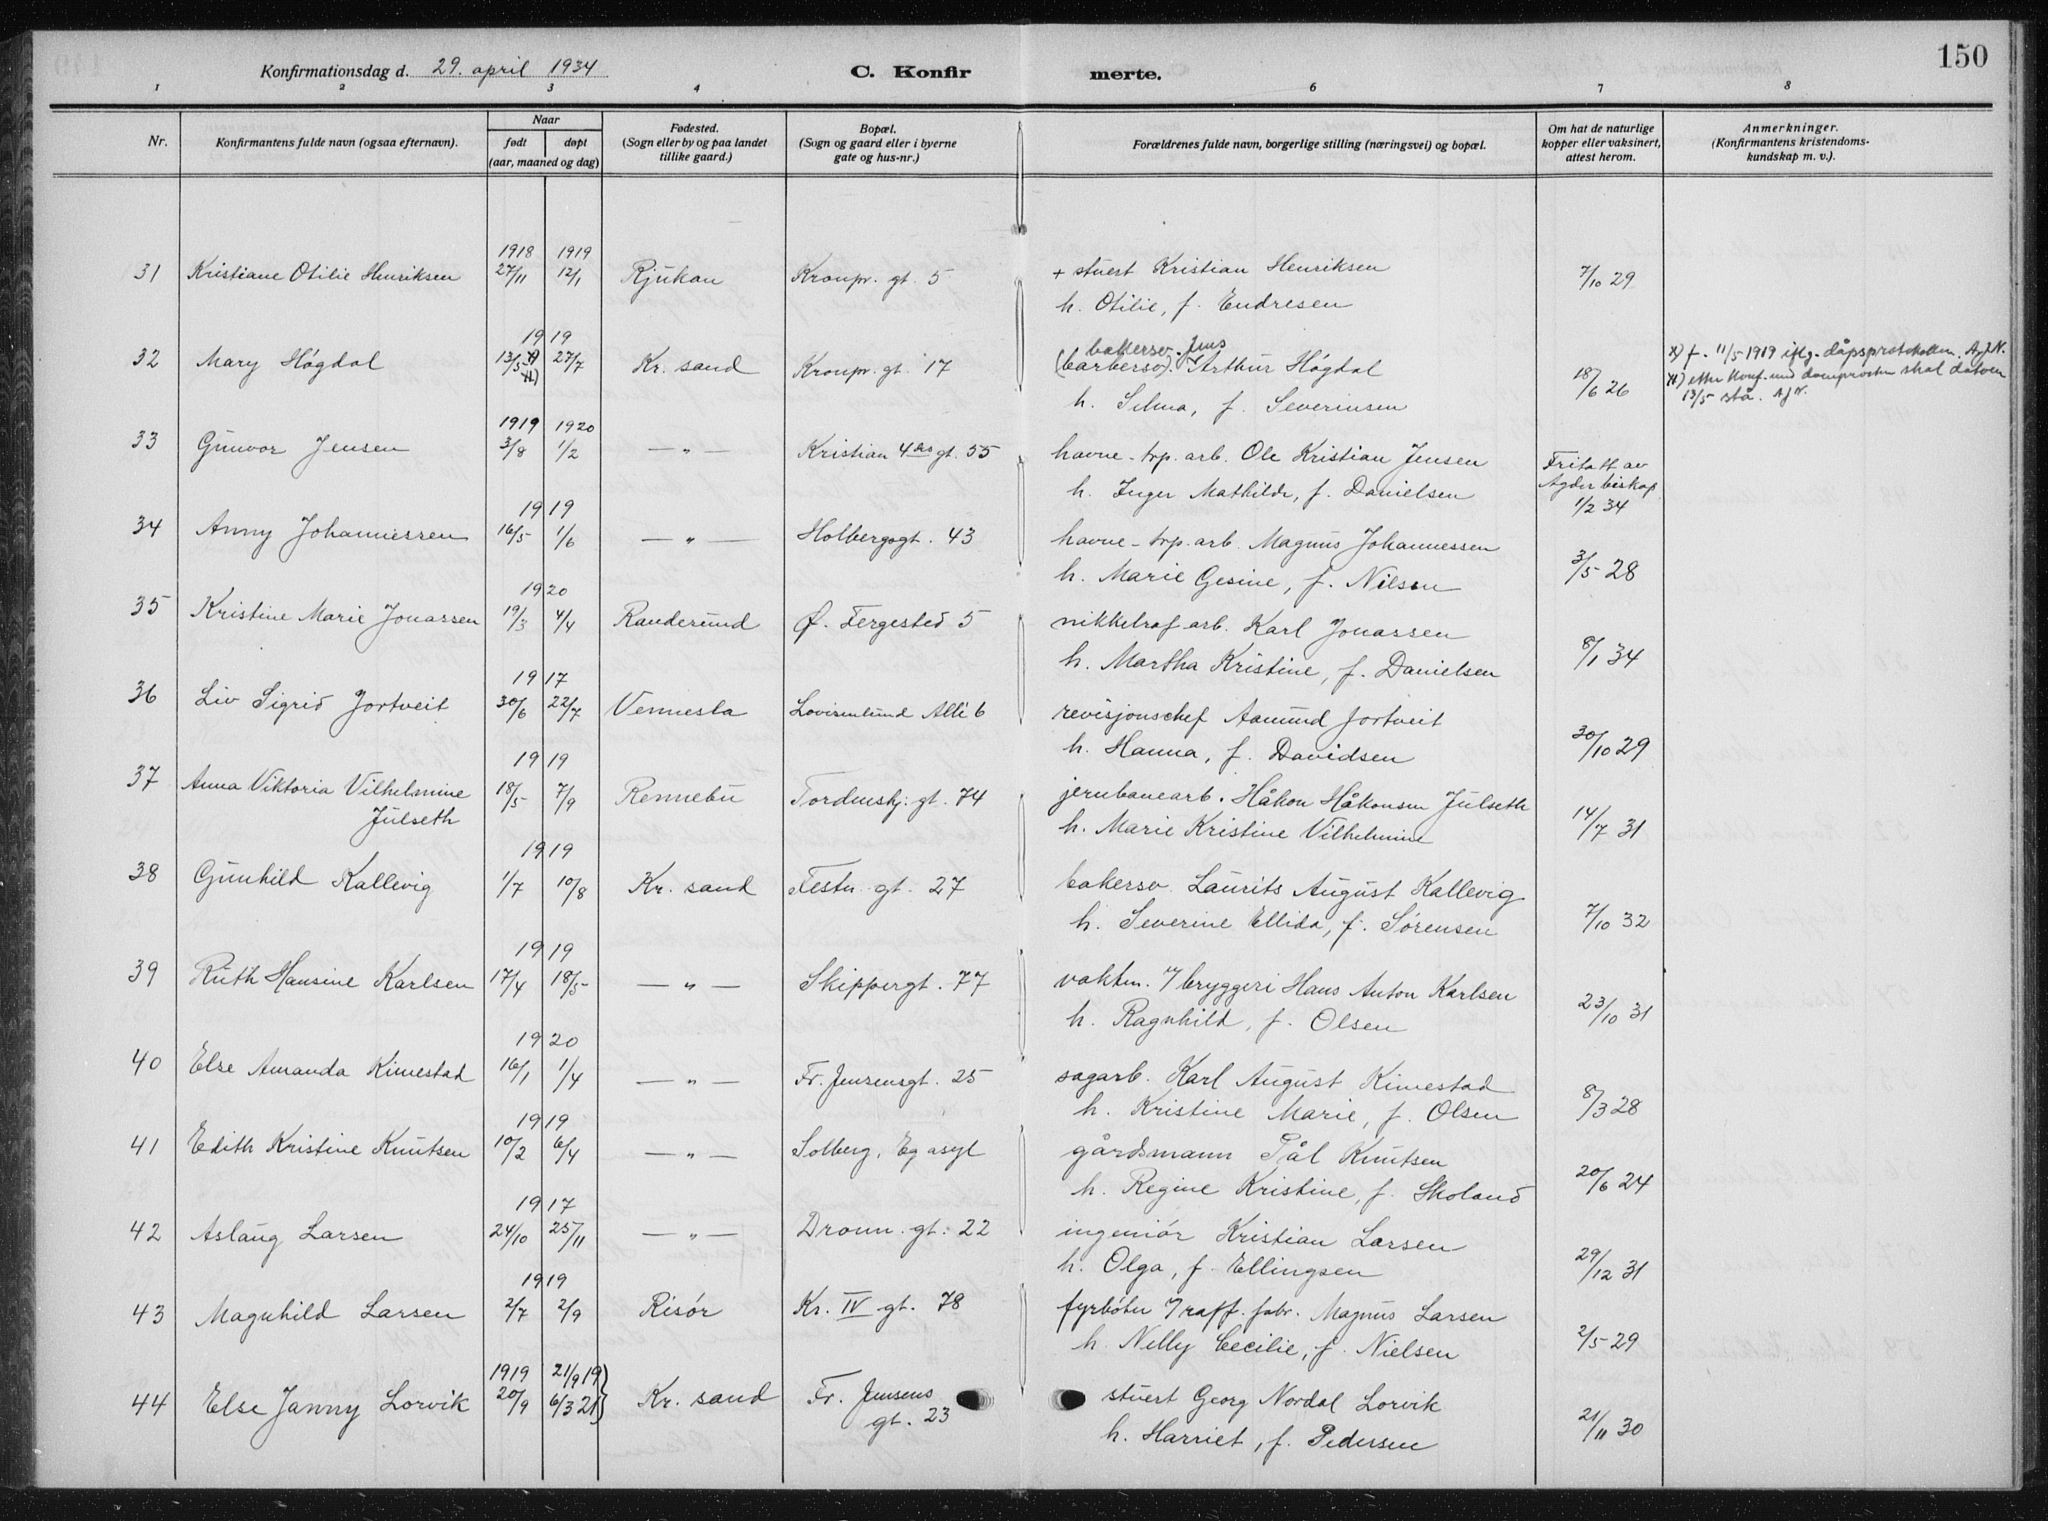 150
Konfirmationsdag d. 29. april 1934 C. Konfir merte.
1 2 3 4 5 6 7 8
Nr. Konfirmantens fulde navn (ogsaa efternavn). Naar født døpt (aar, maaned og dag) Fødested. (Sogn eller by og paa landet tillike gaard.) Bopæl. (Sogn og gaard eller i byerne gate og hus-nr.) Forældrenes fulde navn, borgerlige stilling (næringsvei) og bopæl. Om hat de naturlige kopper eller vaksinert, attest herom. Anmerkninger. (Konfirmantens kristendoms-kundskap m. v.).
1918 1919
31 Kristiane Otilie Henriksen 27/11 12/1 Rjukan Kronpr. gt. 5 + stuert Kristian Henriksen 7/10 29
h. Otilie, f. Endresen
1919
32 Mary Høgdal 13/5 x) xx) 27/7 Kr. sand Kronpr. gt. 17 bakersv. Jens
(barbersv). Arthur Høgdal 18/6 26 x) f. 11/5 1919 iflg. dåpsprotokollen. A.J.N.
h. Selma, f. Severinsen xx) etter konf. med domprosten skal datoen
13/5 stå. AJN.
1919 1920
33 Gunvor Jensen 3/8 1/2 — " — Kristian 4des gt. 55 havne-trp. arb. Ole Kristian Jensen Fritatt av
h. Inger Mathilde, f. Danielsen Agder biskop
1/2 34
1919
34 Anny Johannessen 16/5 1/6 — " — Holbergsgt. 43 havne-trp. arb. Magnus Johannessen
h. Marie Gesine, f. Nilsen 3/5 28
1920
35 Kristine Marie Jonassen 19/3 4/4 Randesund Ø. Fergested 5 nikkelraf. arb. Karl Jonassen
h. Martha Kristine, f. Danielsen 8/1 34
1917
36 Liv Sigrid Jortveit 30/6 22/7 Vennesla Lovisenlund Allé 6 revisjonschef Aamund Jortveit
h. Hanna, f. Davidsen 30/10 29
1919
37 Anna Viktoria Vilhelmine 18/5 7/9 Rennebu Tordenskj. gt. 74 jernbanearb. Håkon Håkonsen Julseth
Julseth h. Marie Kristine Vilhelmine 14/7 31
1919
38 Gunhild Kallevig 1/7 10/8 Kr. sand Festn. gt. 27 bakersv. Laurits August Kallevig
h. Severine Ellida, f. Sørensen 7/10 32
1919
39 Ruth Hansine Karlsen 17/4 18/5 — " — Skippergt. 77 vaktm. v/ bryggeri Hans Anton Karlsen
h. Ragnhild, f. Olsen 23/10 31
1920
40 Else Amanda Kimestad 16/1 1/4 — " — Fr. Jensensgt. 25 sagarb. Karl August Kimestad
h. Kristine Marie, f. Olsen 8/3 28
1919
41 Edith Kristine Knutsen 10/2 6/4 — " — Solberg, Eg asyl gårdsmann Pål Knutsen
h. Regine Kristine, f. Skoland 20/6 24
1917
42 Aslaug Larsen 24/10 25/11 — " — Dronn. gt. 22 ingeniør Kristian Larsen
h. Olga, f. Ellingsen 29/12 31
1919
43 Magnhild Larsen 2/7 2/9 Risør Kr. IV gt. 78 fyrbøter v/ raff. fabr. Magnus Larsen
h. Nelly Cecilie, f. Nielsen 2/5 29
1919 21/9 19
44 Else Janny Lorvik 20/9 6/3 21 Kr. sand Fr. Jensens stuert Georg Nordal Lorvik
gt. 23 h. Harriet, f. Pedersen 21/11 30